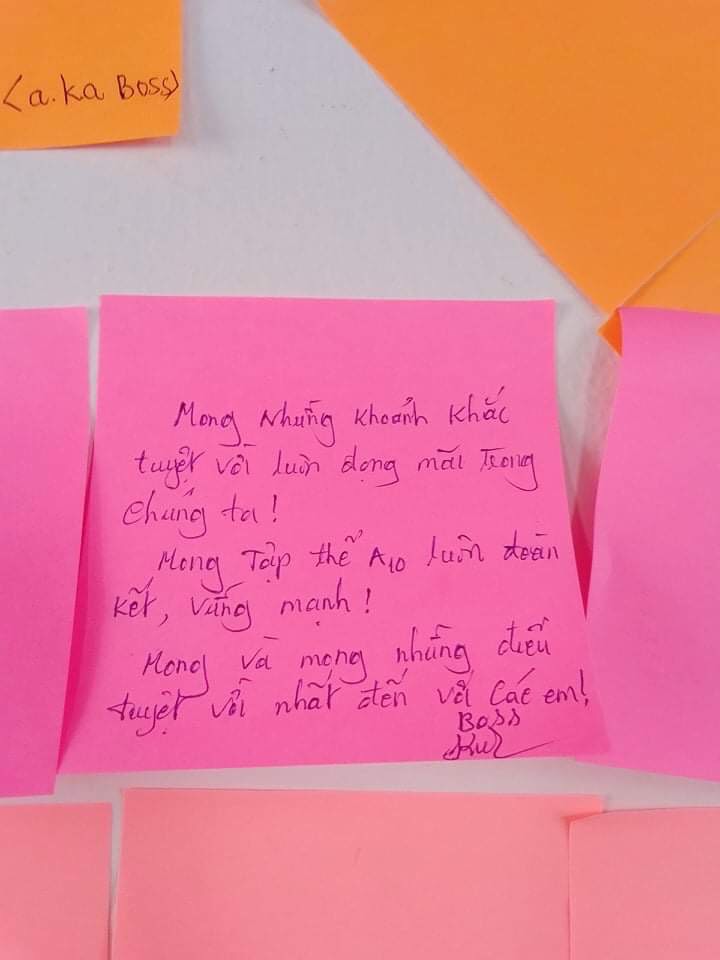 <a.ka Boss>
Mong Những khoảnh khắc
tuyệt vời luôn đọng mãi Trong
chúng ta!
Mong Tập thể A10 luôn đoàn
kết, vững mạnh!
Mong và mong những điều
tuyệt vời nhất đến với các em!
Boss